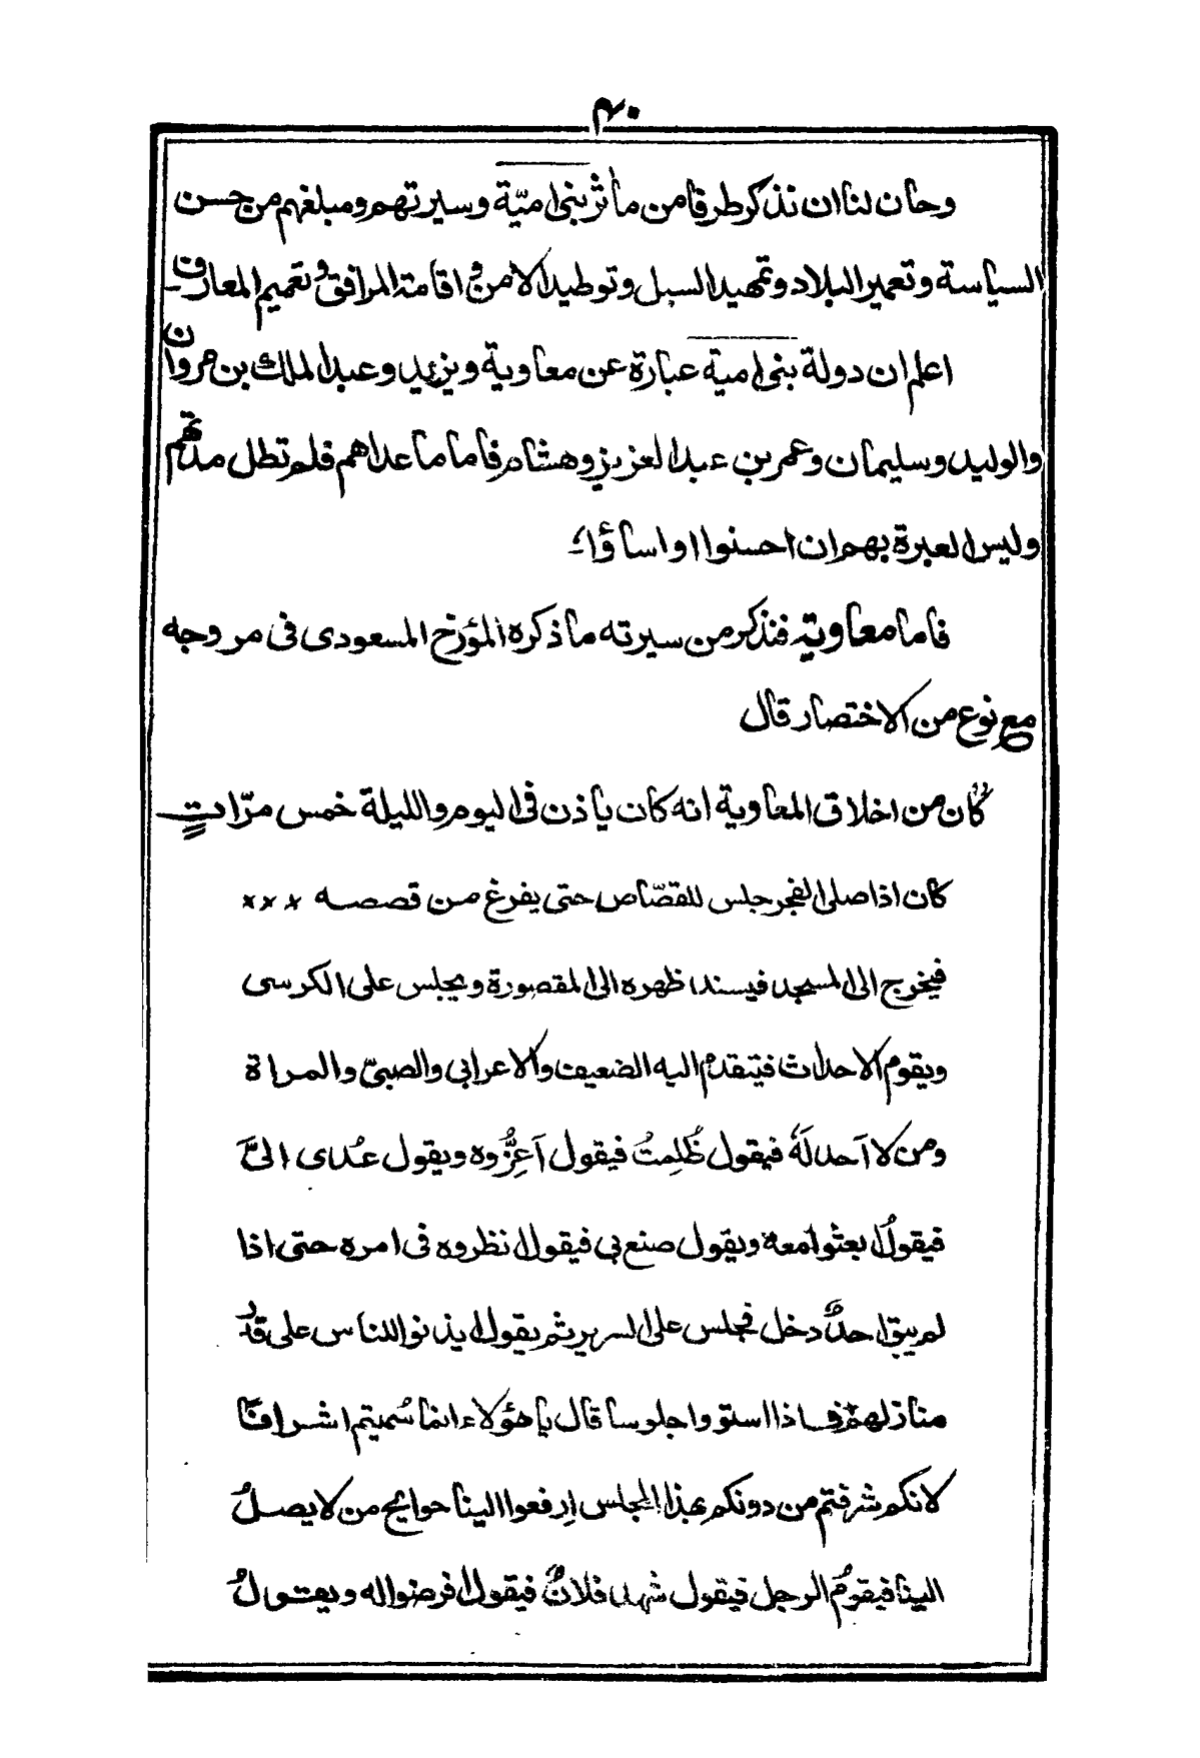 ٤٠
وحان لنا ان نذكر طرفا من مأثر بنى اميّة وسيرتهم ومبلغهم من حسن
السياسة وتعمير البلاد وتمهيد السبل وتوطيد الامن و اقامة المرافق و تعميم المعارف
اعلم ان دولة بنى امية عبارة عن معاوية ويزيد وعبد الملك بن مروان
والوليد وسليمان وعمر بن عبد العزيز وهشام فاما ما عداهم فلم تطل مدتهم
وليس العبرة بهم ان احسنوا او اساؤا،
فاما معاوية فنذكر من سيرته ما ذكره المؤرخ المسعودى فى مروجه
مع نوع من الاختصار قال
كان من اخلاق المعاوية انه كان ياذن فى اليوم والليلة خمس مرّاتٍ
كان اذا صلى الفجر جلس للقصّاص حتى يفرغ من قصصه ×××
فيخرج الى المسجد فيسند ظهره الى المقصورة ويجلس على الكرسى
ويقوم الاحداث فيتقدم اليه الضعيف والاعرابى والصبىّ والمراة
ومن لا اَحد لَهٗ فيقول ظُلِمتُ فيقول اَعِزُّوه ويقول عُدى الىَّ
فيقولُ ابعثوا معه ويقول صنع بى فيقول انظروه فى امره حتى اذا
لم يبق احدٌ دخل فجلس على السرير ثم يقول ايذنوا للناس على قدرِ
منازلهم فاذا استووا جلوسا قال يا هؤلاء انما سُميتم اشرافًا
لانكم شرفتم من دونكم بهذا المجلس اِرفعوا الينا حوايج من لا يصلُ
الينا فيقومُ الرجل فيقول شهد فلانٌ فيقول افرضوا له ويقولُ